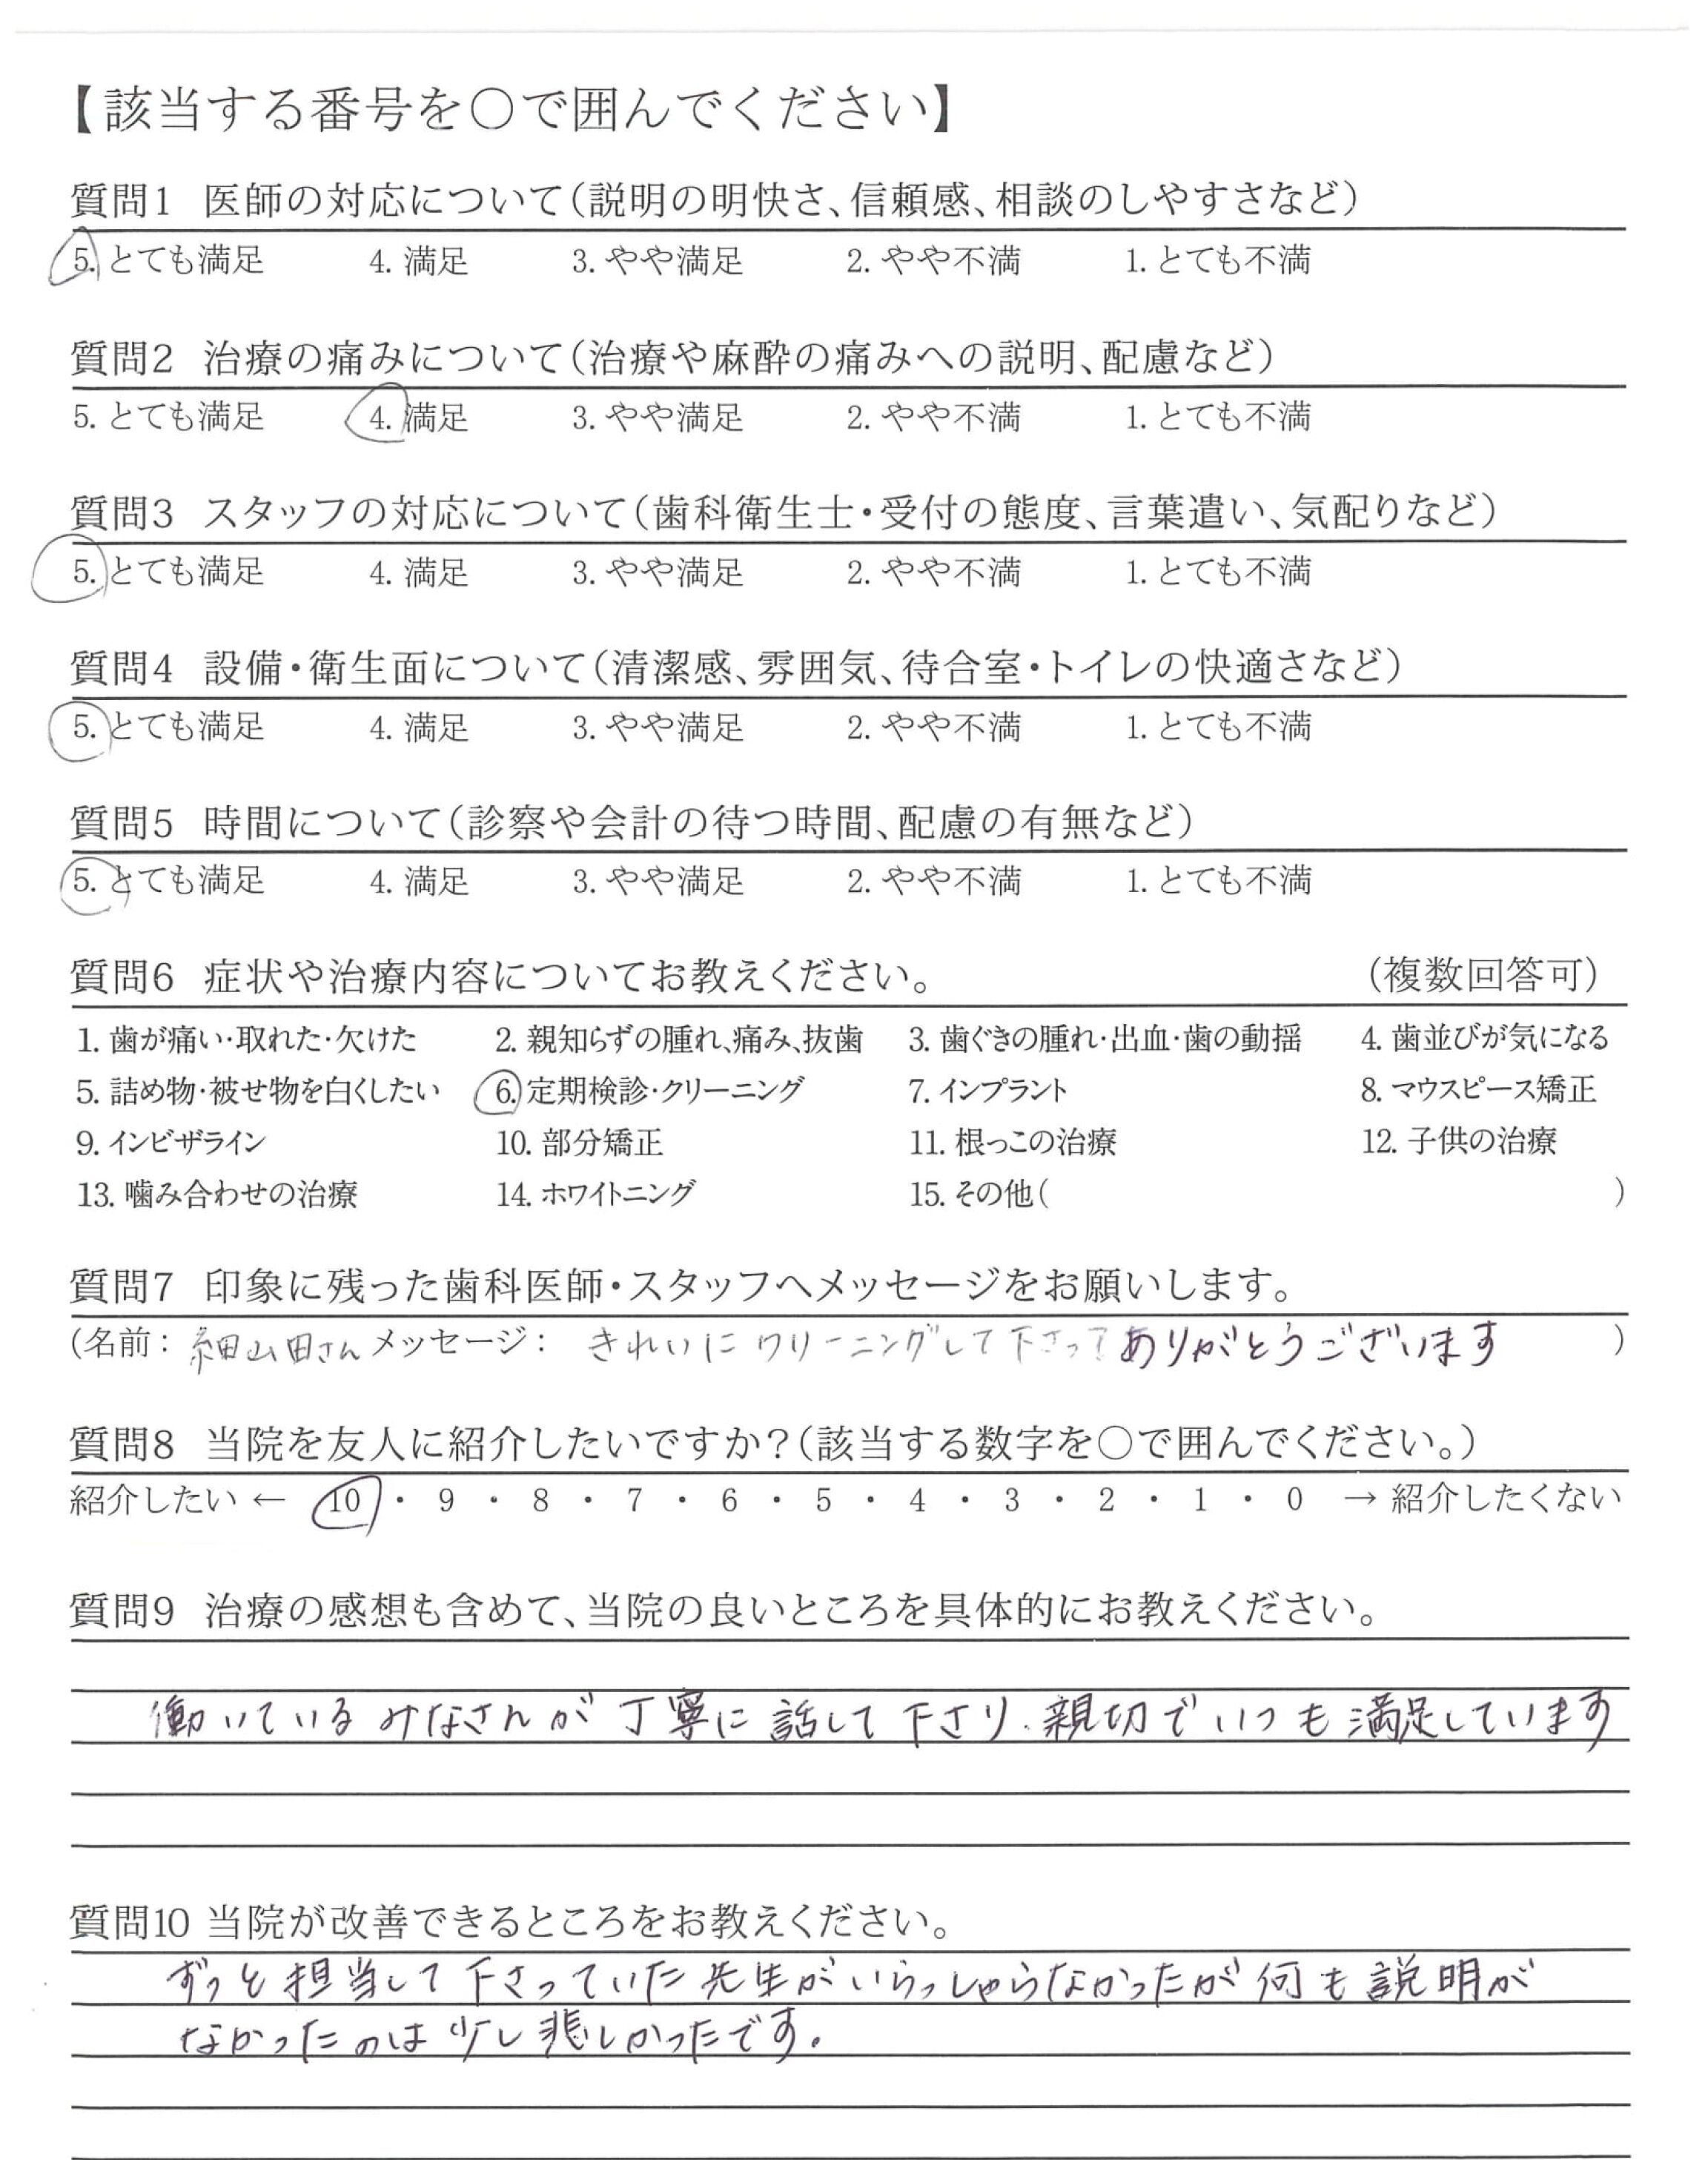 【該当する番号を○で囲んでください】
質問1 医師の対応について(説明の明快さ、信頼感、相談のしやすさなど)
5. とても満足 4. 満足 3. やや満足 2. やや不満 1. とても不満
質問2 治療の痛みについて(治療や麻酔の痛みへの説明、配慮など)
5. とても満足 4. 満足 3. やや満足 2. やや不満 1. とても不満
質問3 スタッフの対応について(歯科衛生士・受付の態度、言葉遣い、気配りなど)
5. とても満足 4. 満足 3. やや満足 2. やや不満 1. とても不満
質問4 設備・衛生面について(清潔感、雰囲気、待合室・トイレの快適さなど)
5. とても満足 4. 満足 3. やや満足 2. やや不満 1. とても不満
質問5 時間について(診察や会計の待つ時間、配慮の有無など)
5. とても満足 4. 満足 3. やや満足 2. やや不満 1. とても不満
質問6 症状や治療内容についてお教えください。 (複数回答可)
1. 歯が痛い・取れた・欠けた 2. 親知らずの腫れ、痛み、抜歯 3. 歯ぐきの腫れ・出血・歯の動揺 4. 歯並びが気になる
5. 詰め物・被せ物を白くしたい 6. 定期検診・クリーニング 7. インプラント 8. マウスピース矯正
9. インビザライン 10. 部分矯正 11. 根っこの治療 12. 子供の治療
13. 噛み合わせの治療 14. ホワイトニング 15. その他( )
質問7 印象に残った歯科医師・スタッフへメッセージをお願いします。
(名前: 細山田さん メッセージ: きれいにクリーニングして下さってありがとうございます )
質問8 当院を友人に紹介したいですか?(該当する数字を○で囲んでください。)
紹介したい ← 10 ・ 9 ・ 8 ・ 7 ・ 6 ・ 5 ・ 4 ・ 3 ・ 2 ・ 1 ・ 0 → 紹介したくない
質問9 治療の感想も含めて、当院の良いところを具体的にお教えください。
働いているみなさんが丁寧に話して下さり、親切でいつも満足しています
質問10 当院が改善できるところをお教えください。
ずっと担当して下さっていた先生がいらっしゃらなかったが何も説明が
なかったのは少し悲しかったです。